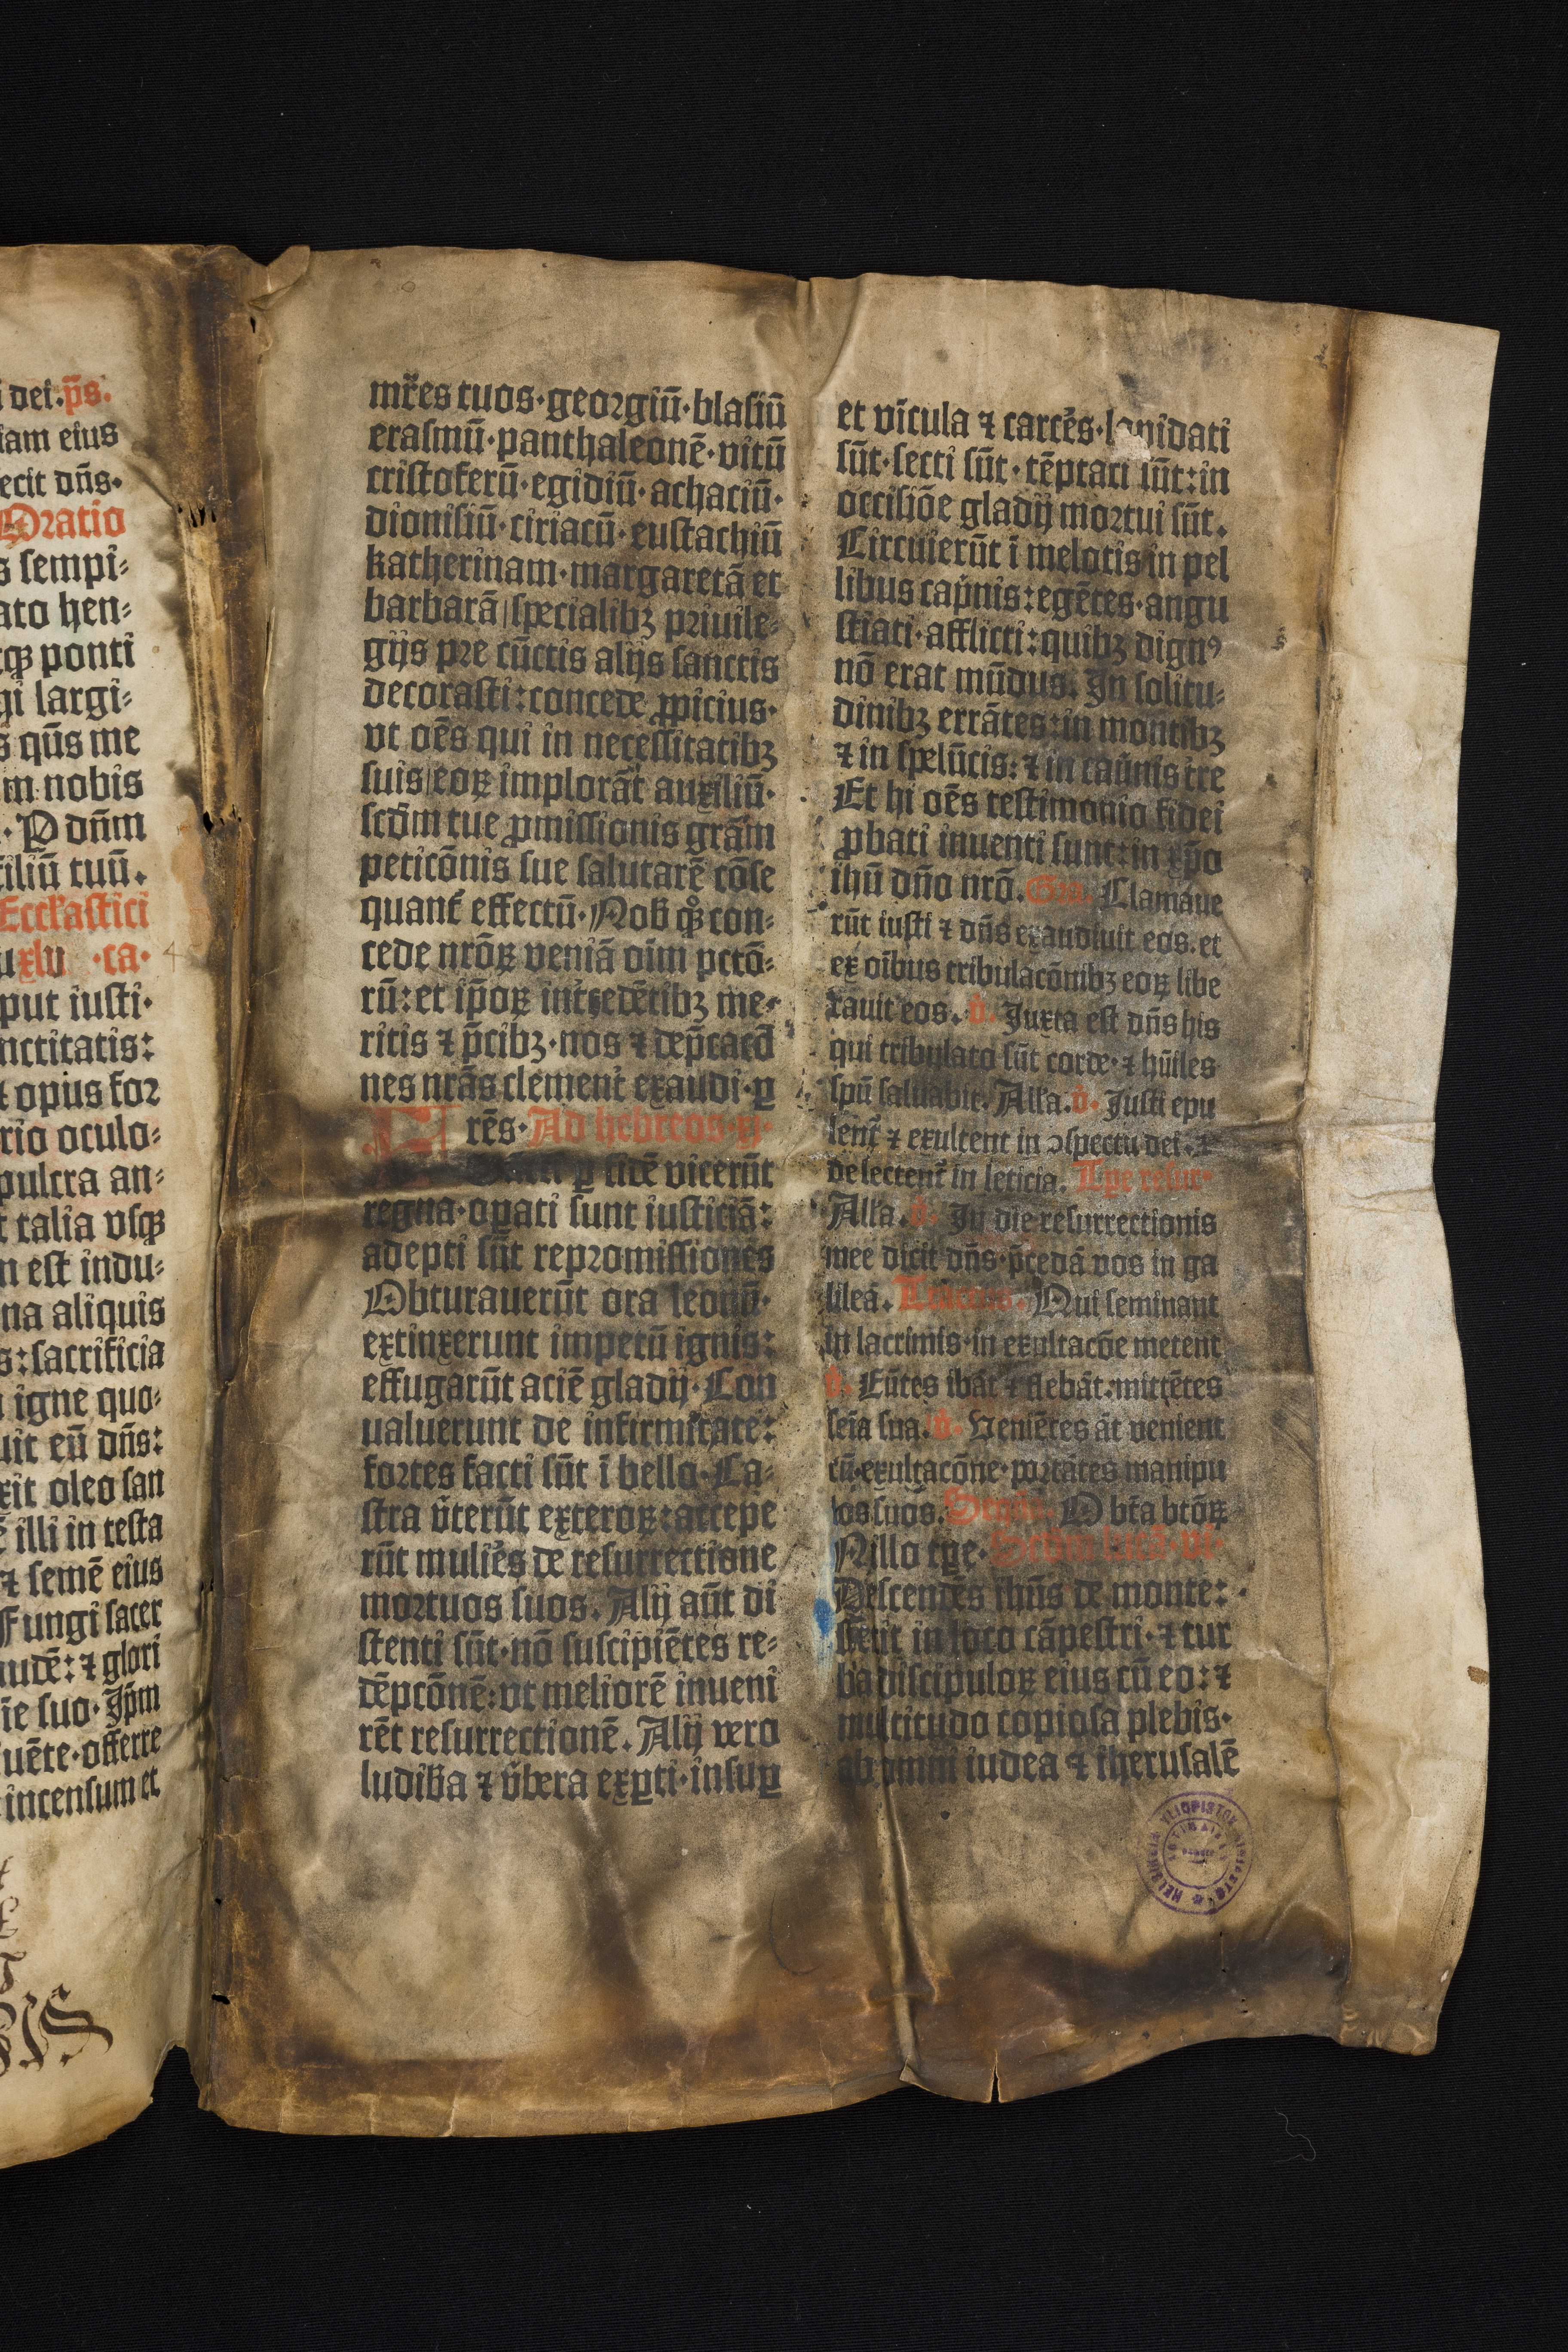 i dei. p̄s.
iam eius
ecit dn̄s.
Oratio
s sempi⸗
ato hen⸗
qꝫ ponti
gi largi⸗
s qūs me
m nobis
. P dn̄m
iliū tuū.
Eccłastici
xlv · ca·
put iusti·
nctitatis:
t opus for
rio oculo⸗
pulcra an⸗
t talia vsqꝫ
n est indu⸗
na aliquis
s: sacrificia
igne quo⸗
uit eū dn̄s:
xit oleo san
ē illi in testa
⁊ semē eius
Fungi sacer
audē: ⁊ glori
ie suo· Ip̄m
uēte· offerre
incensum et
mr̄es tuos·georgiū·blasiū
erasmū·panthaleonē·vitū
cristoferū·egidiū·achaciū·
dionisiū·ciriacū·eustachiū
katherinam·margaretā et
barbarā specialibꝫ priuile⸗
gijs pre cūctis alijs sanctis
decorasti: concede ꝓpicius·
vt oēs qui in necessitatibꝫ
suis eoꝝ implorāt auxiliū·
scd̄m tue ꝓmissionis grām
peticōnis sue salutarē cōse
quant᷑ effectū· Nob̄ qͦꝫ con⸗
cede nrōꝝ veniā oīm pctō⸗
rū: et ip̄oꝝ int̄cedētibꝫ me⸗
ritis ⁊ p̄cibꝫ· nos ⁊ dep̄cacō
nes nrās clement᷑ exaudi· ꝑ
rēs· Ad hebreos· xj·
ꝑ fidē vicerūt
regna· oꝑati sunt iusticiā:
adepti sūt repromissiones
Obturauerūt ora leonū·
extinxerunt impetū ignis:
effugarūt aciē gladij· Con
ualuerunt de infirmitate:
fortes facti sūt ī bello· Ca⸗
stra v̄terūt exteroꝝ: accepe
rūt mulie᷑s de resurrectione
mortuos suos. Alij aūt di
stenti sūt· nō suscipiētes re⸗
dēpcōnē: vt meliorē inueni
rēt resurrectionē. Alij vero
ludib̄a ⁊ v̄bera exꝑti· insuꝑ
et vīcula ⁊ carce᷑s· lapidati
sūt· secti sūt· tēptati sūt: in
occisiōe gladij mortui sūt.
Circuierūt ī melotis in pel
libus cap̄nis: egētes· angu
stiati· afflicti: quibꝫ dignꝰ
nō erat mūdus. In solitu⸗
dinibꝫ errātes: in montibꝫ
⁊ in spelūcis: ⁊ in cau̇nis tre
Et hi oēs testimonio fidei
ꝓbati inuenti sunt: in xp̄o
ihū dn̄o nrō. Gra. Clamaue
rūt iusti ⁊ dn̄s exaudiuit eos. et
ex oībus tribulacōnibꝫ eoꝝ libe
rauit eos. v̇. Juxta est dn̄s his
qui tribulato sūt corde· ⁊ hūiles
spū saluabit. All̄a. v̇. Justi epu
lent᷑ ⁊ exultent in ɔspectu dei· ⁊
delectent᷑ in leticia. Tꝑe resur·
All̄a. v̇. In die resurrectionis
mee dicit dn̄s· p̄cedā vos in ga
lileā. Tractus. Qui seminant
in lacrimis· in exultacōe metent
v̇. Eūtes ibāt ⁊ flebāt· mittētes
seīa sua. v̇. Veniētes āt venient
cū exultacōne· portātes manipu
los suos. Sequēā. O bt̄a bt̄oꝝ
N illo tꝑe· Scd̄m lucā· vi·
Descendēs ihūs de monte:
stetit in loco cāpestri· ⁊ tur
ba discipuloꝝ eius cū eo: ⁊
multitudo copiosa plebis·
ab omni iudea ⁊ iherusalē
HELSINGIN YLIOPISTON KIRJASTO